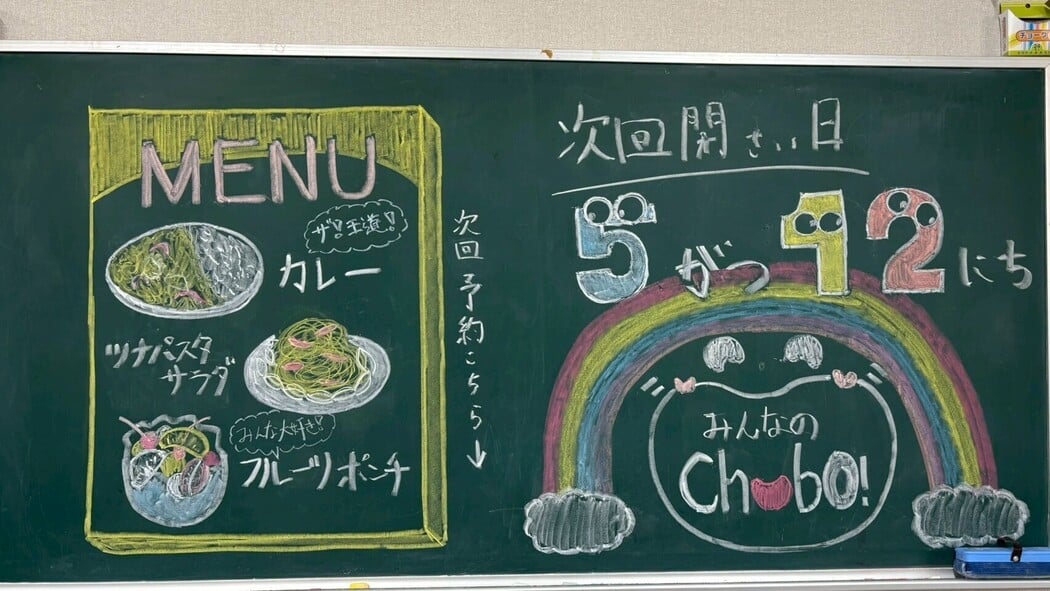 MENU
ザ!王道!
カレー
ツナパスタ
サラダ
みんな大好き!
フルーツポンチ
次回予約こちら↓
次回開さい日
5がつ12にち
みんなの
Chubo!
チョーク